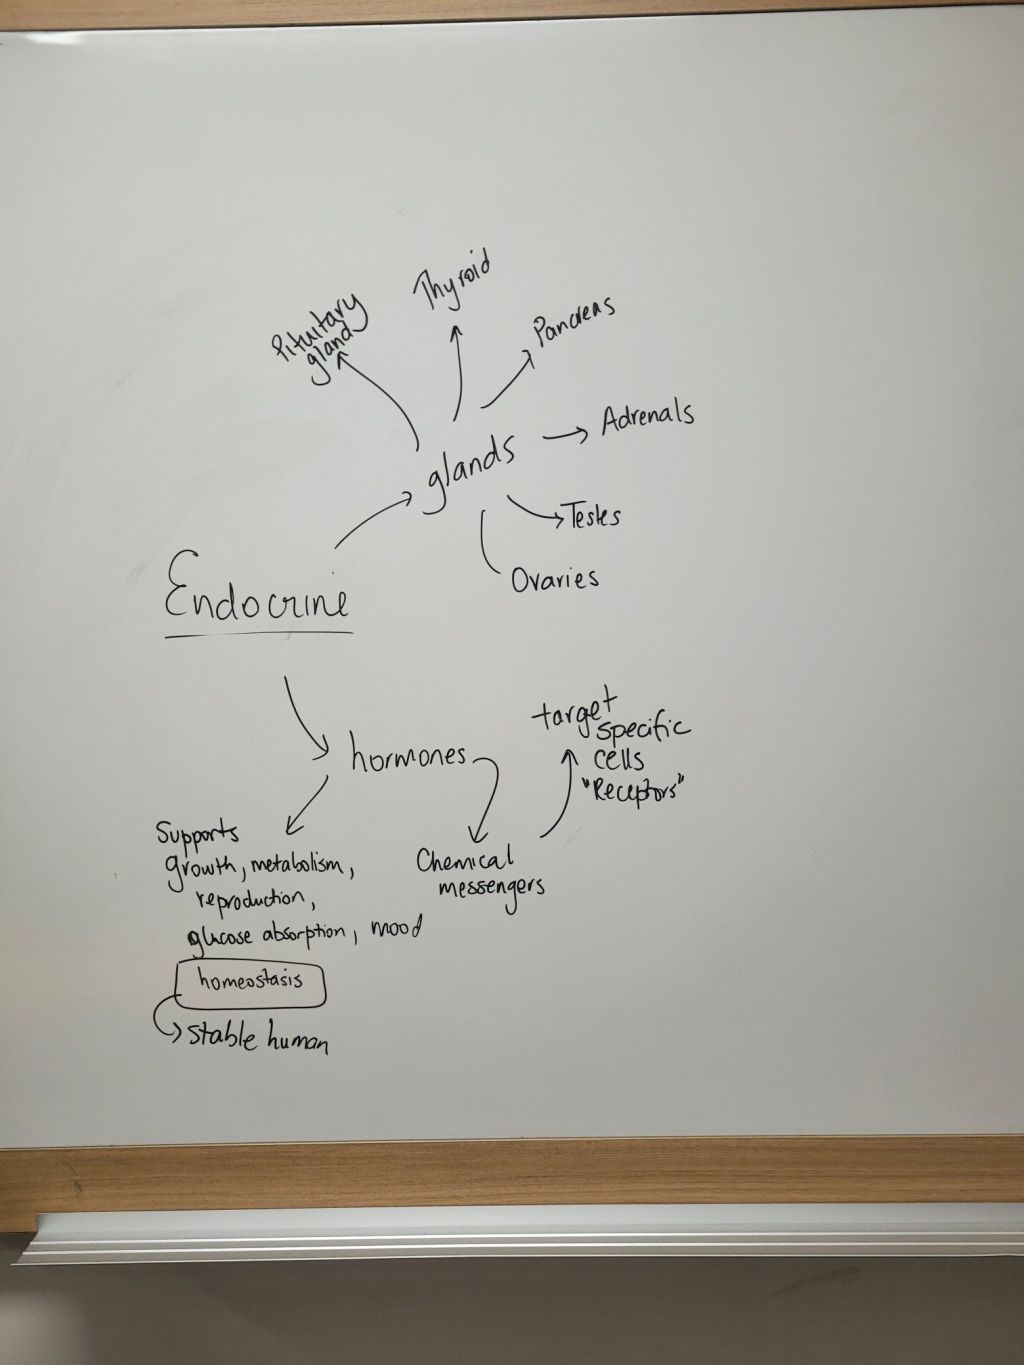 Thyroid
Pituitary
gland
Pancreas
Adrenals
glands
Testes
Ovaries
Endocrine
target
specific
cells
"Receptors"
hormones
Supports
growth, metabolism,
reproduction,
glucose absorption, mood
Chemical
messengers
homeostasis
stable human